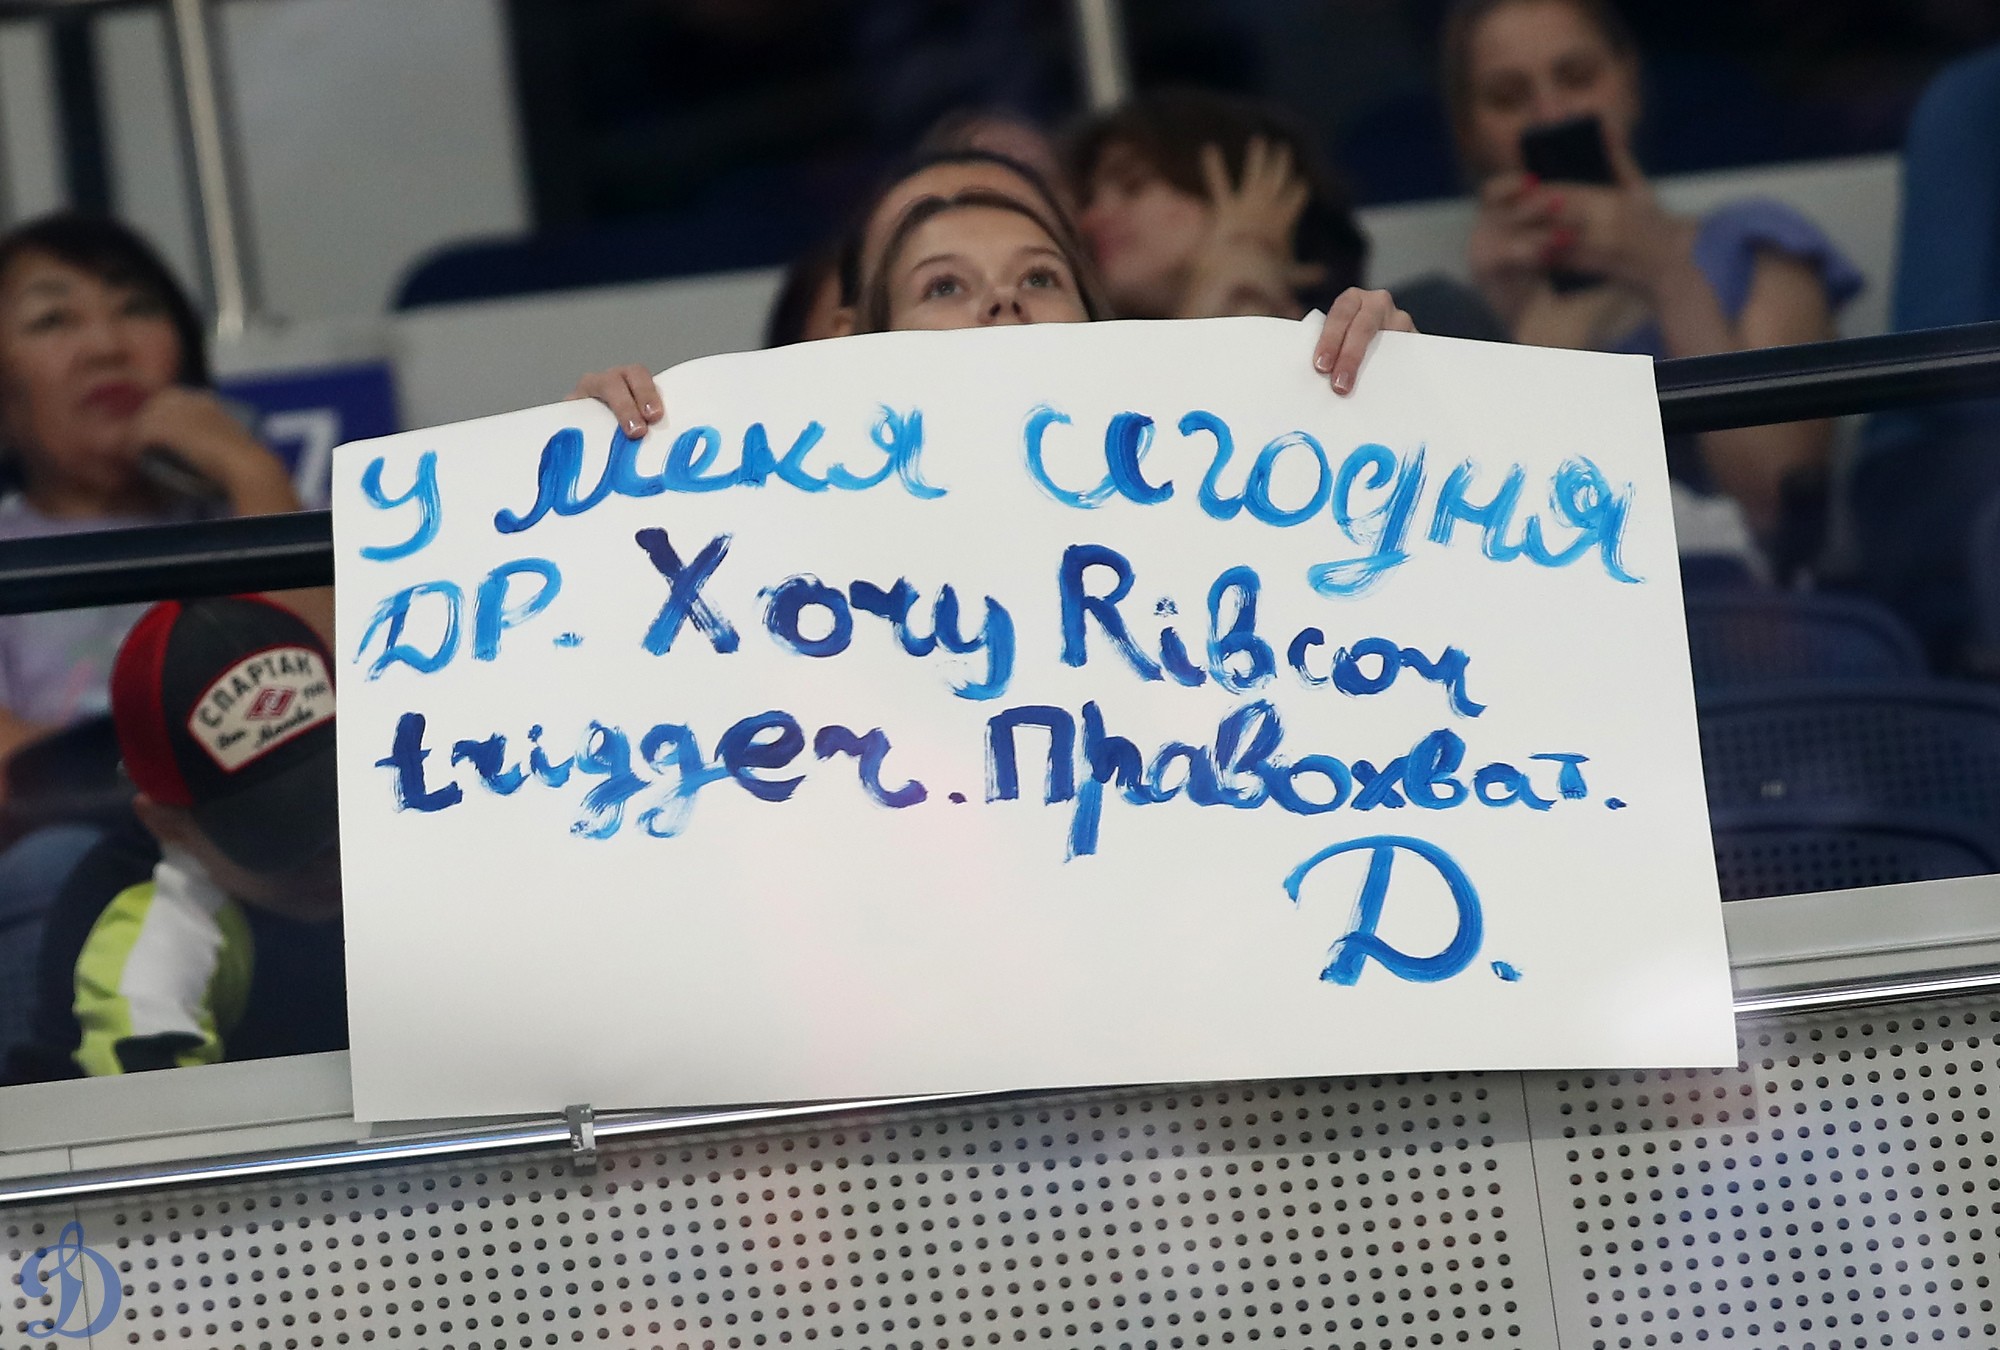 У меня сягодня
ДР. Хочу Ribcor
trigger. Правохват.
Д.
СПАРТАК
Москва
7
Д